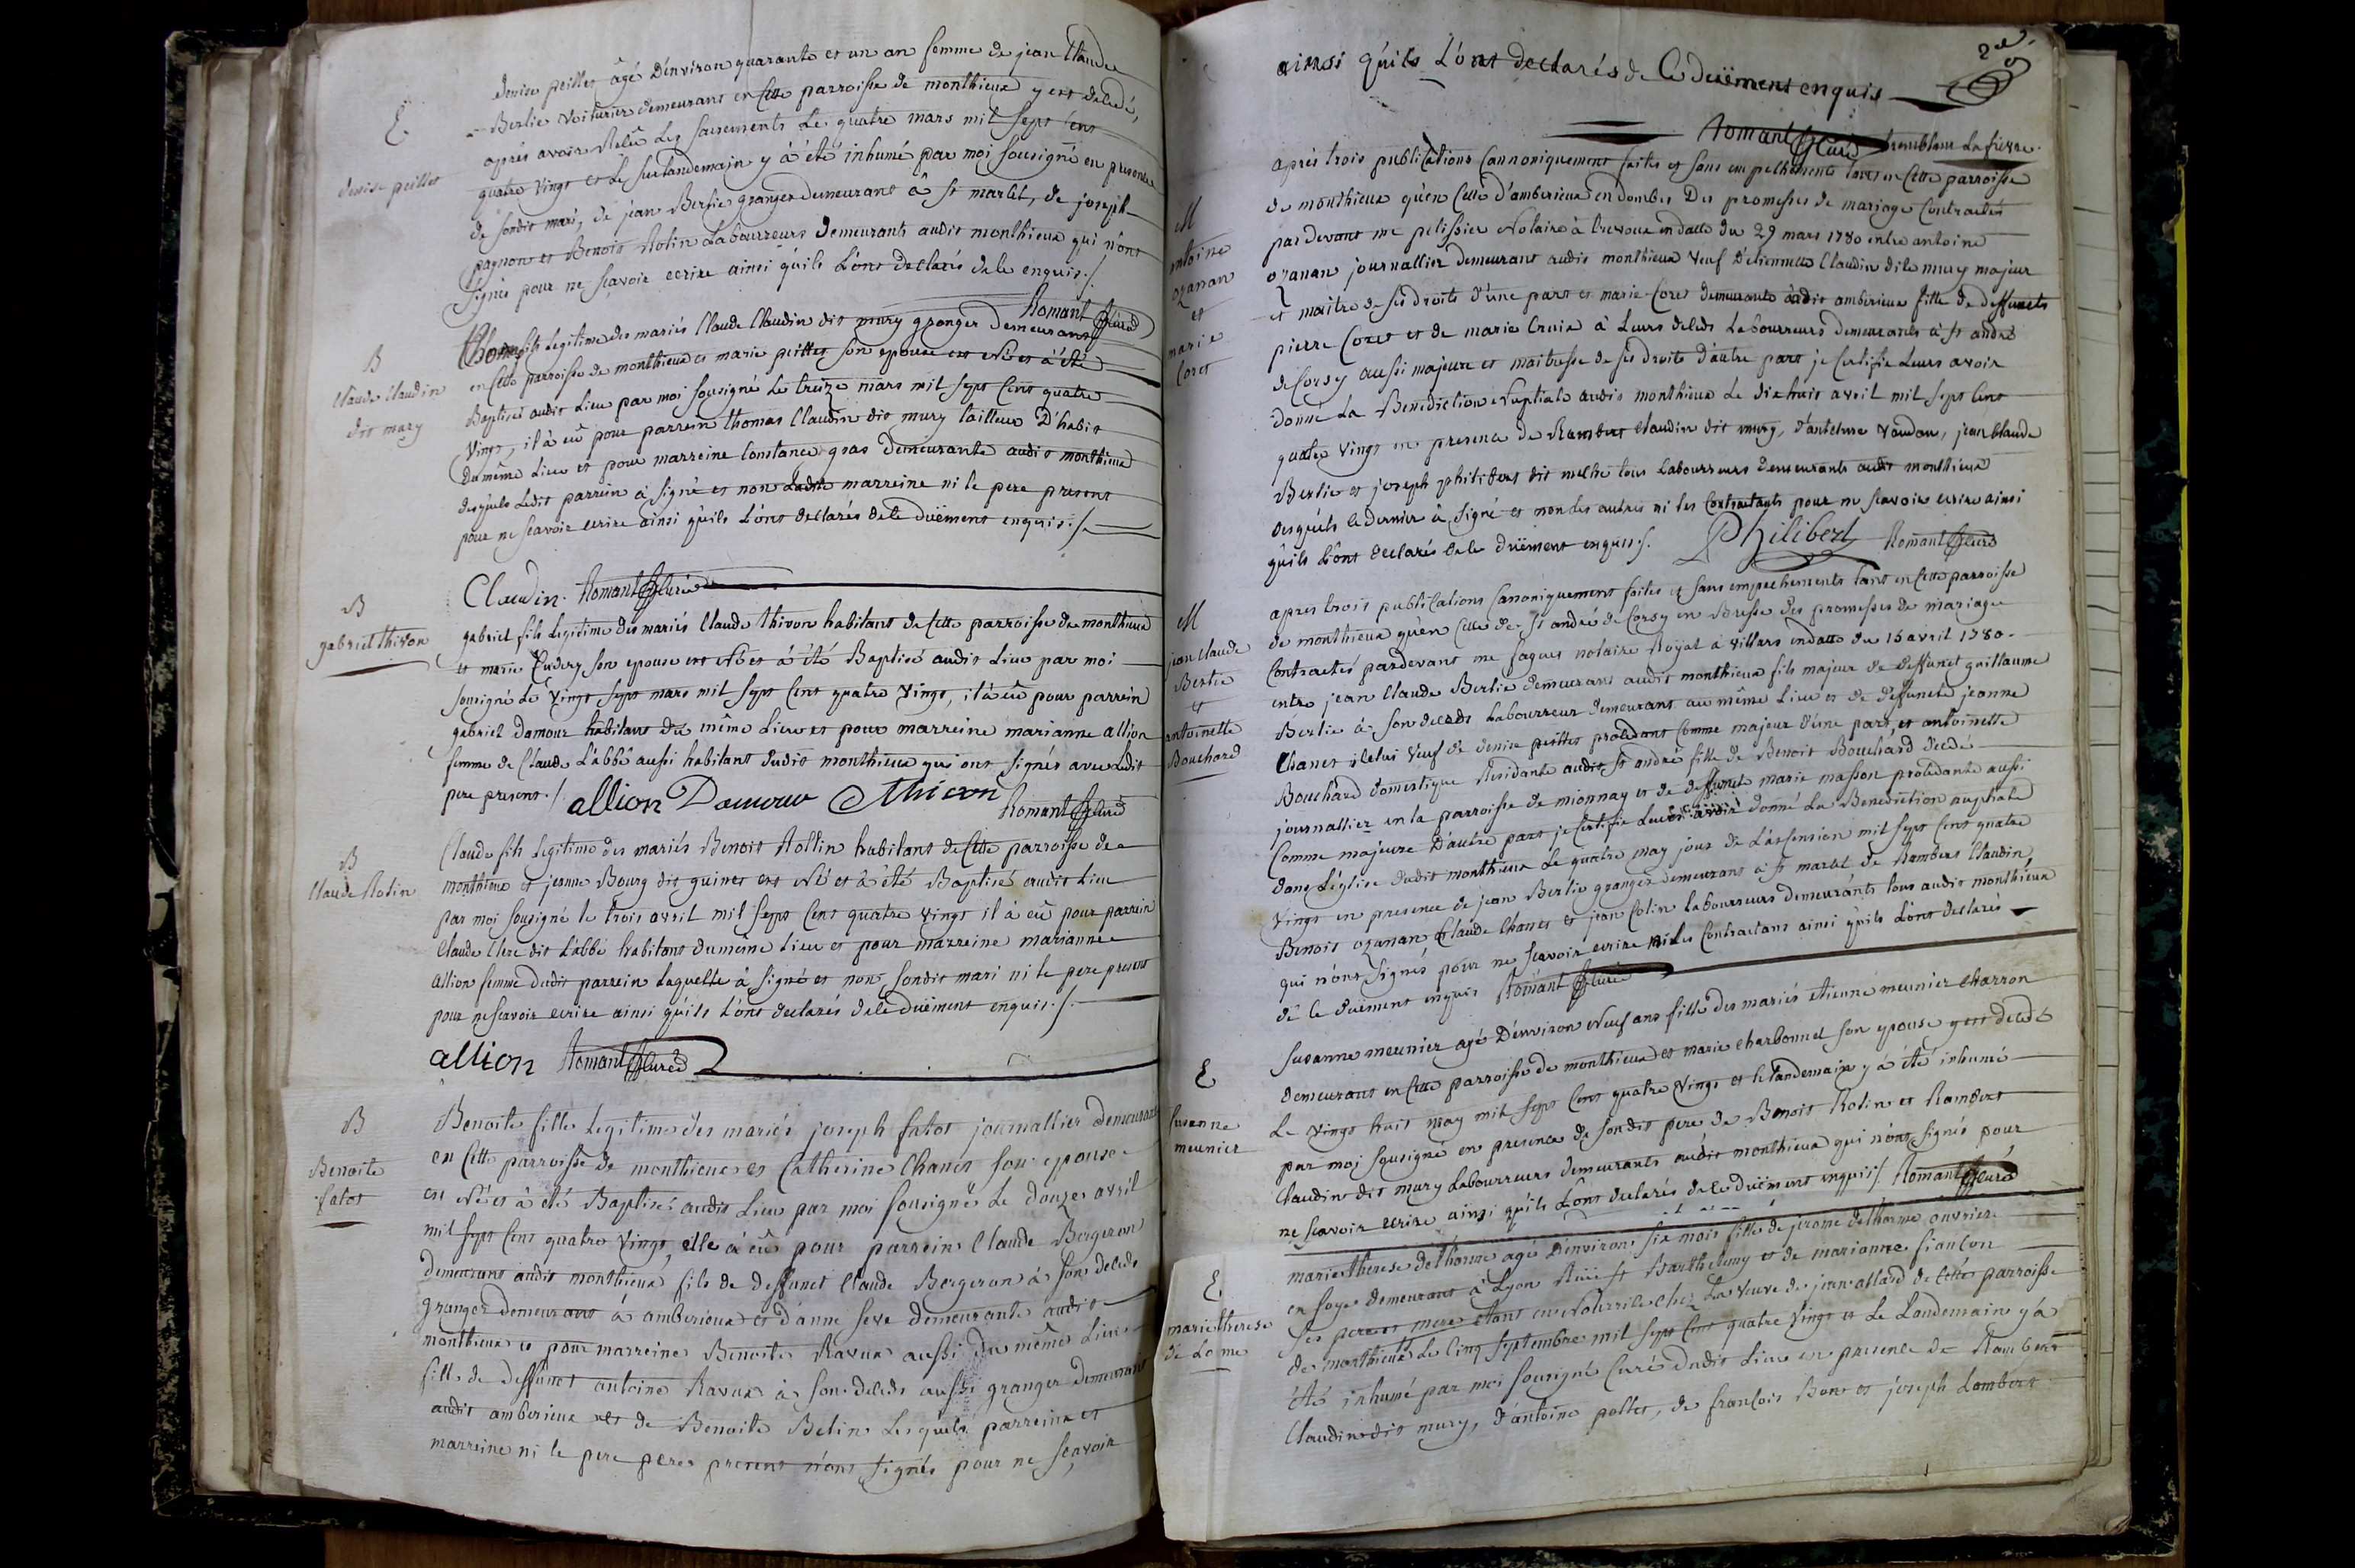 E
denise peillet
denise peillet âgé D'environ quarante et un an femme de jean Claude
Berlie voiturier demeurant en Cette parroisse de monthieux y est deledé,
aprés avoir Relû Les sacrements Le quatre mars mil sept Cent
quatre vingt et Le surlandemain y à été inhumé par moi sousigné en presence
de sondit mari, de jean Berlie granger demeurant à st marlet, de joseph
pagnon et Benoit Rolin Labourreurs demeurants audit monthieux qui n'ont
signés pour ne sçavoir ecrire ainsi qu'ils L'ont declarés de le enquis ./.
Romant Curé
B
Claude Claudin
dit mury
fils Legitime des mariés Claude Claudin dit mury granger demeurant
en Cette parroisse de monthieux et marie peillet son epouse est Né et à été
Baptisé audit Lieu par moi sousigné Le treize mars mil sept Cent quatre
Vingt, il à eû pour parrein thomas Claudin dit mury tailleur D'habit
du même Lieu et pour marreine Constance gras demeurante audit monthieux
desquels Ledit parrein à signé et non Ladite marreine ni le pere present
pour ne sçavoir ecrire ainsi qu'ils L'ont declarés de le duëment enquis ./.
Claudin Romant Curé
B
gabriel thivon
gabriel fils Legitime des mariés Claude thivon habitant de Cette parroisse de monthieux
et marie son epouse est Né et à été Baptisé audit Lieu par moi
sousigné Le Vingt sept mars mil sept Cent quatre Vingt, il à eû pour parrein
gabriel Damour habitant du même Lieu et pour marreine marianne allion
femme de Claude L'abbé aussi habitant dudit monthieux qui ont signés avec Ledit
pere present ./. allion Damour Thivon
Romant Curé
B
Claude Rolin
Claude fils Legitime des mariés Benoit Rollin habitant de Cette parroisse de
monthieux et jeanne Bourg dit guinet est Né et à été Baptisé audit Lieu
par moi sousigné le trois avril mil sept Cent quatre vingt il à eû pour parrein
Claude Clere dit L'abbé habitant du même Lieu et pour marreine marianne
allion femme dudit parrein Laquelle à signé et non sondit mari ni le pere present
pour ne sçavoir ecrire ainsi qu'ils L'ont declarés de le duëment enquis ./.
allion Romant Curé
B
Benoite
fatot
Benoite fille Legitime des mariés joseph fatot journallier demeurant
en Cette parroisse de monthieux et Catherine Chanet son epouse
est Né et à été Baptisé audit Lieu par moi sousigné Le douze avril
mil sept Cent quatre Vingt, elle à eû pour parrein Claude Bergeron
demeurant audit monthieux fils de deffunct Claude Bergeron à son deleds
granger demeurant à amberieux et d'anne seve demeurante audit
monthieux et pour marreine Benoite Ravux aussi du même Lieu
fille de deffunct antoine Ravux à son deleds aussi granger demeurant
audit amberieux et de Benoite Belin Lesquels parrein et
marreine ni le pere present n'ont signés pour ne sçavoir
2e
ainsi qu'ils L'ont declarés de Ce duëment enquis
Romant Curé
M
antoine
ozanan
et
marie
Coret
aprés trois publications Cannoniquement faites et sans empechements tant en Cette parroisse
de monthieux qu'en Celle d'amberieux en dombes Des promesses de mariage Contractés
par devant me pelissier Notaire à trevoux en datte du 29 mars 1780 entre antoine
ozanan journallier demeurant audit monthieux veuf D'étiennette Claudin dite mury majeur
et maitre de ses droits d'une part et marie Coret demeurante audit amberieux fille de deffuncts
pierre Coret et de marie Croix à Leurs deleds Labourreurs demeurants à st andré
de Corsy aussi majeure et maitresse de ses droits d'autre part je Certifie Leurs avoir
donné La Benediction Nuptiale audit monthieux Le dix huit avril mil sept Cent
quatre vingt en presence de Rambert Claudin dit mury, d'antelme vaudan, jean Claude
Berlie et joseph philibert dit melhe tous Labourreurs demeurants audit monthieux
desquels le dernier à signé et non les autres ni les Contractants pour ne sçavoir ecrire ainsi
qu'ils L'ont declarés de le duëment enquis ./. Philibert Romant Curé
M
jean Claude
Berlie
et
antoinette
Bouchard
apres trois publications Canoniquement faites et sans empechements tant en Cette parroisse
de monthieux qu'en Celle de st andré de Corsy en Bresse des promesses de mariage
Contractés pardevant me faques notaire Royal à villars en datte du 16 avril 1780.
entre jean Claude Berlie demeurant audit monthieux fils majeur de deffunct guillaume
Berlie à son deceds Labourreur demeurant au même Lieu et de deffuncte jeanne
Chanet icelui veuf de denise peillet procedant Comme majeur d'une part, et antoinette
Bouchard domestique Residante audit st andré fille de Benoit Bouchard decedé
journallier en la parroisse de mionnay et de deffuncte marie masson procedante aussi
Comme majeure D'autre part je Certifie Leurs avoir donné La Benediction nuptiale
dans L'église dudit monthieux Le quatre may jour de L'ascension mil sept Cent quatre
Vingt en presence de jean Berlie granger demeurant à st marlet de Rambert Claudin,
Benoit ozanan, Claude Chanet et jean Colin Labourreurs demeurants tous audit monthieux
qui n'ont signés pour ne sçavoir ecrire ni les Contractans ainsi qu'ils L'ont declarés
de le duëment enquis Romant Curé
E
susanne
meunier
susanne meunier agé D'environ Neuf ans fille des mariés etienne meunier Charron
demeurant en Cette parroisse de monthieux et marie charbonnet son epouse y est deledé
Le vingt huit may mil sept Cent quatre Vingt et le landemain y à été inhumé
par moi sousigné en presence de sondit pere de Benoit Rolin et Rambert
Claudin dit mury Labourreurs demeurants audit monthieux qui n'ont signés pour
ne sçavoir ecrire ainsi qu'ils L'ont declarés de le duëment enquis ./. Romant Curé
E
marie therese
de Lorme
marie therese delhorme agé D'environ six mois fille de jerome delhorme ouvrier
en soye demeurant à Lyon Rüe st Barthelemy et de marianne fiançon
ses pere et mere etant en Nourrile chez La veuve de jean allard de Cette parroisse
de monthieux Le Cinq septembre mil sept Cent quatre Vingt et Le Landemain y à
été inhumé par moi sousigné Curé dudit Lieu en presence de Rambert
Claudin dit mury, d'antoine pollet, de françois Bon et joseph Lambert